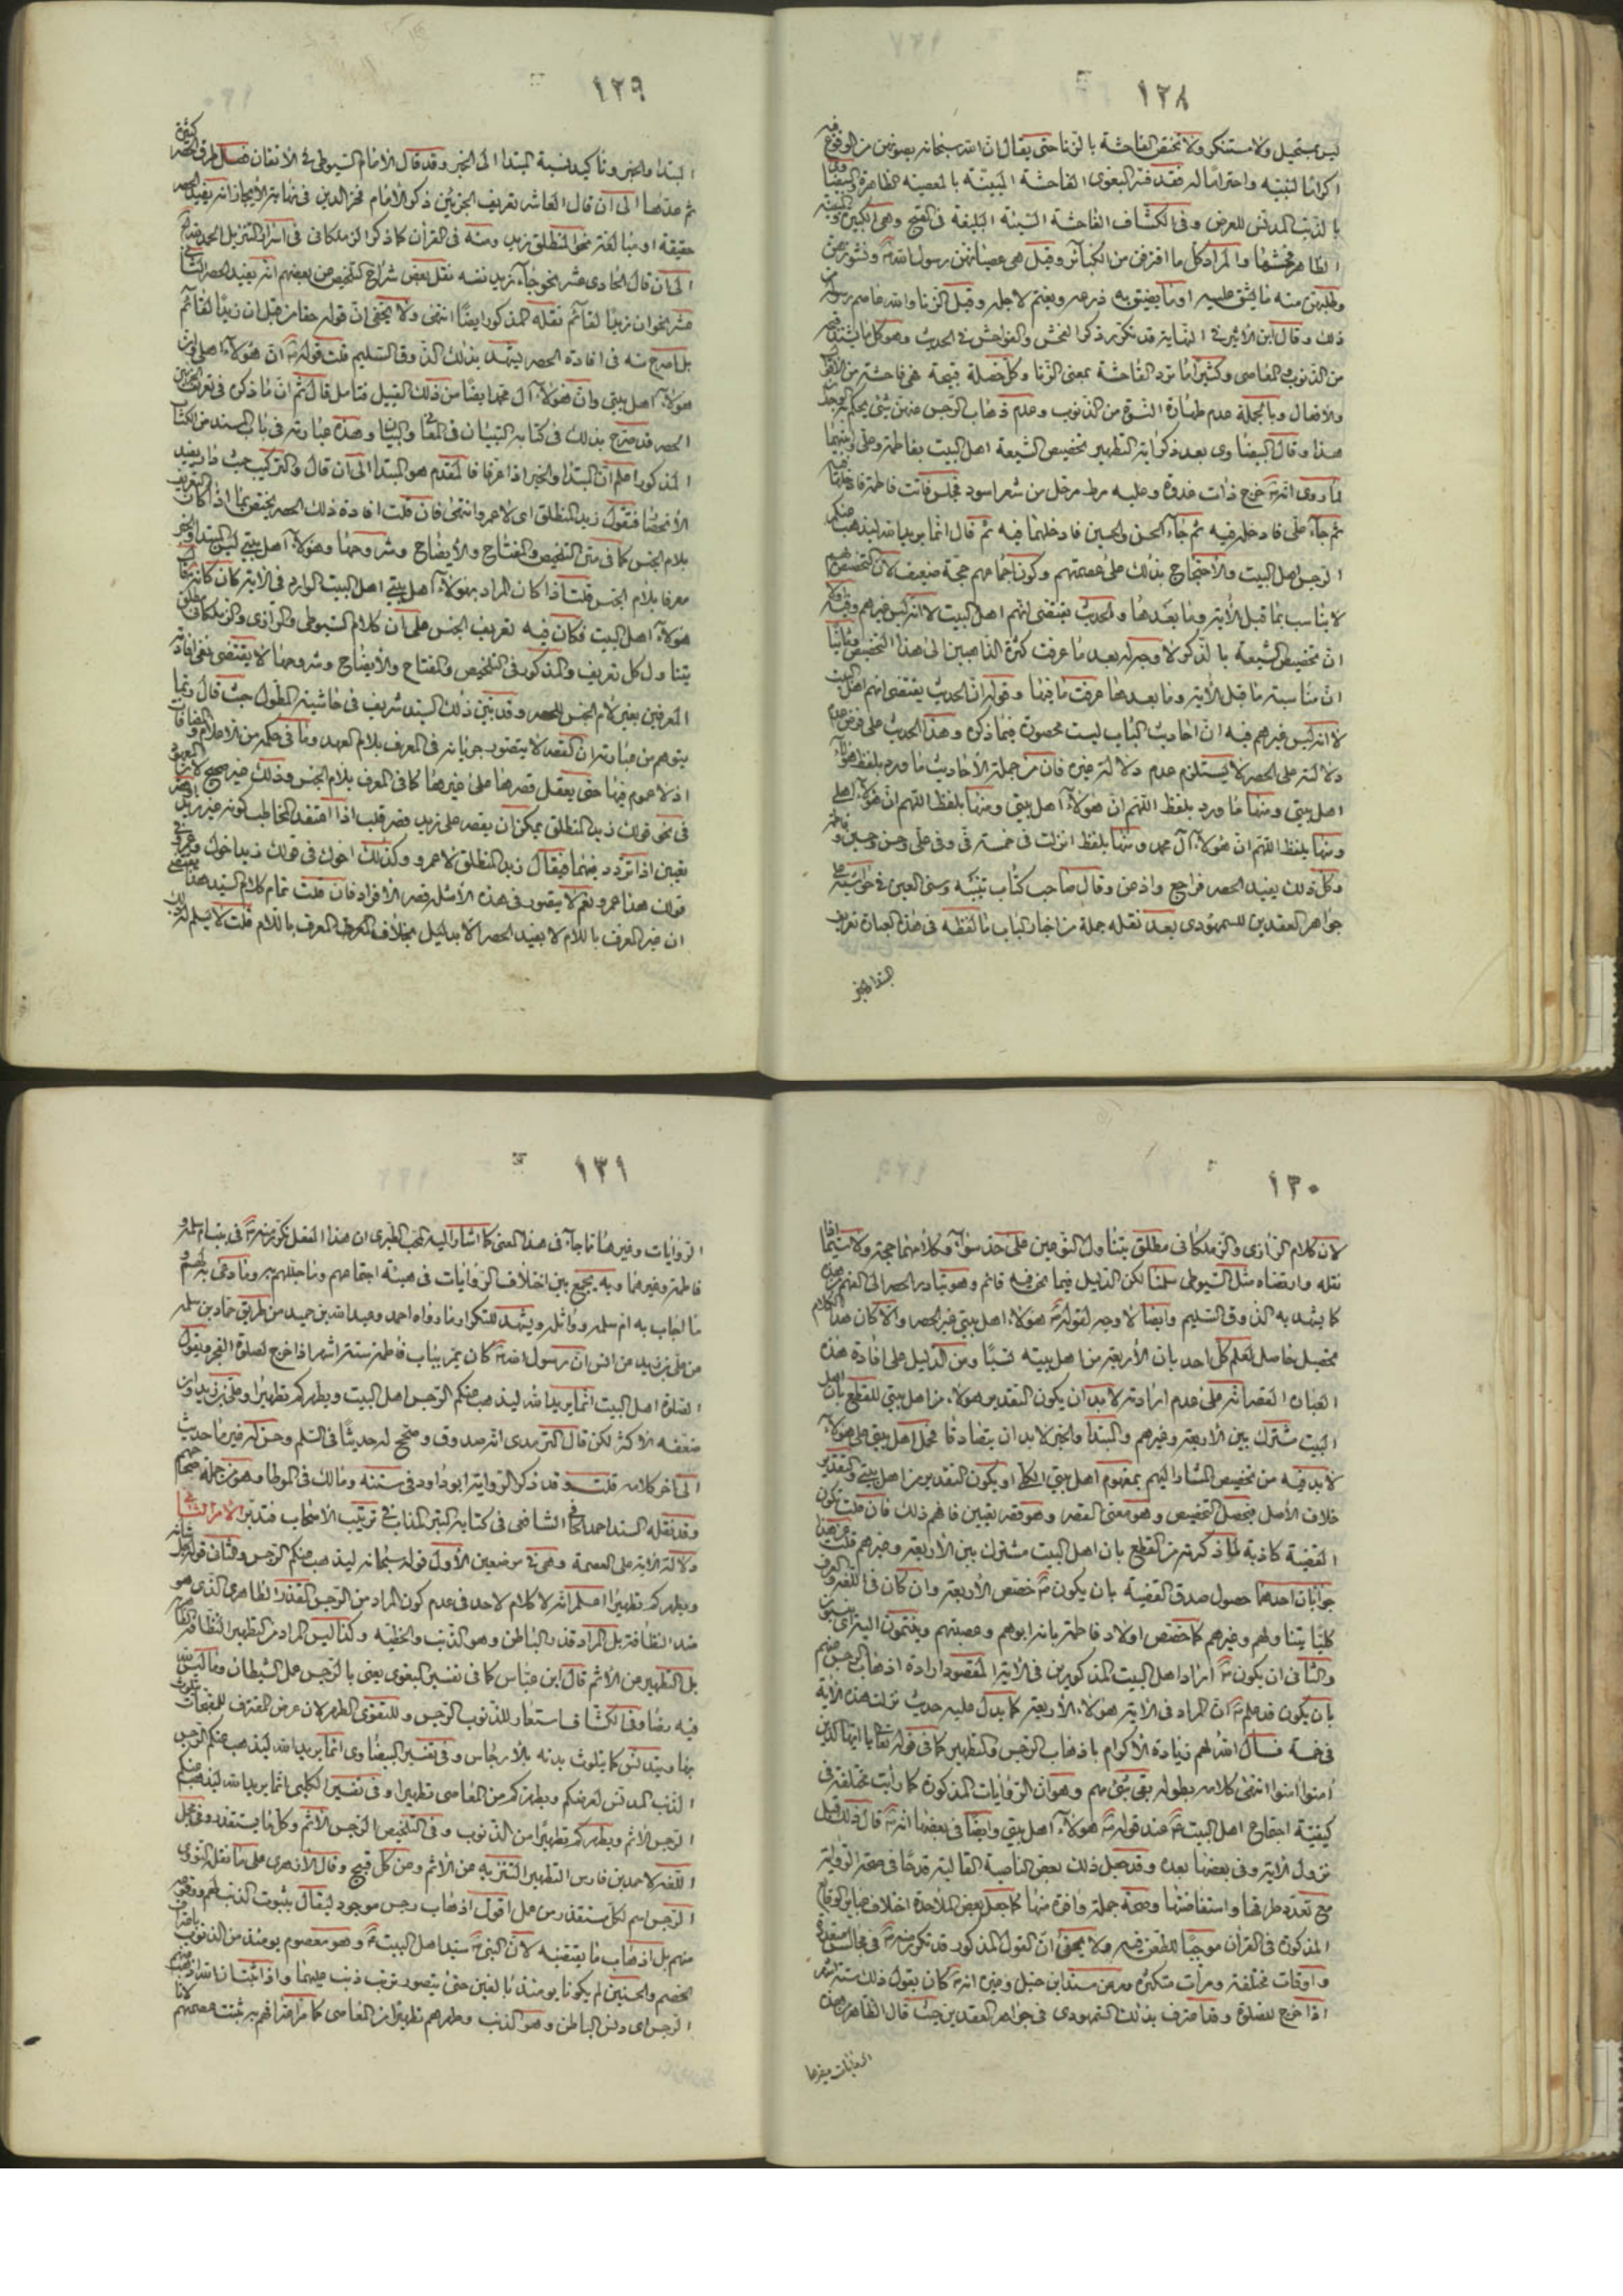 ١٢٨
ليس بمستحيل ولا مستنكر ولا تختص الفاحشة بالزنا حتى يقال ان الله سبحانه يصونهن من الوقوع فيه
اكراما لنبيه واحتراما له فقد فسر البغوى الفاحشة المبينة بالمعصية الظاهرة
بالذنب المدنس للعرض وفى الكشاف الفاحشة السيئة البليغة فى القبح وهى الكبيرة
الظاهر فحشها والمراد كل ما اقترفن من الكبائر وقيل هى عصيانهن رسول الله ونشوزهن
وطلبهن منه ما يشق عليه او ما يضيق به ذرعه ويغتم لاجله وقيل الزنا والله عاصم رسوله من
ذلك وقال ابن الاثير فى النهاية قد تكرر ذكر الفحش والفواحش فى الحديث وهو كل ما يشتد قبحه
من الذنوب والمعاصى وكثيرا ما ترد الفاحشة بمعنى الزنا وكل خصلة قبيحة فهى فاحشة من الاقوال
والافعال وبالجملة عدم طهارة النسوة من الذنوب وعدم ذهاب الرجس عنهن شئ يحكم به
هذا وقال البيضاوى بعد ذكر اية التطهير تخصيص الشيعة اهل البيت بفاطمة وعلى وابنيهما
لما روى انه خرج ذات غدوة وعليه مرط مرحل من شعر اسود فجلس فاتت فاطمة فادخلها فيه
ثم جاء على فادخله فيه ثم جاء الحسن والحسين فادخلهما فيه ثم قال انما يريد الله ليذهب عنكم
الرجس اهل البيت والاحتجاج بذلك على عصمتهم وكون اجماعهم حجة ضعيف لان التخصيص بهم
لا يناسب ما قبل الاية وما بعدها والحديث يقتضى انهم اهل البيت لا انه ليس غيرهم وفيه
ان تخصيص الشيعة بالذكر لا وجه له بعد ما عرفت كثرة الذاهبين الى هذا التخصيص وثانيا
ان مناسبة ما قبل الاية وما بعدها عرفت ما فيها وقوله ان الحديث يقتضى انهم اهل البيت
لا انه ليس غيرهم فيه ان احاديث الباب ليست محصورة فيما ذكره وهذا الحديث على فرض عدم
دلالته على الحصر لا يستلزم عدم دلالة غيره فان من جملة الاحاديث ما ورد بلفظ هؤلاء
اهل بيتى ومنها ما ورد بلفظ اللهم ان هؤلاء اهل بيتى ومنها بلفظ اللهم ان هؤلاء اهلى
ومنها بلفظ اللهم ان هؤلاء آل محمد ومنها بلفظ انزلت فى خمسة فى وفى على وحسن وحسين وفاطمة
وكل ذلك يفيد الحصر فراجع واذعن وقال صاحب كتاب تنبيه وسنى العين فى حواشيه على
جواهر العقدين للسمهودى بعد نقله جملة من اخبار الباب ما لفظه فى هذه العبارة تعريف
المبتدا والخبر
١٢٩
المبتدا والخبر وتاكيد نسبة المبتدا الى الخبر وقد قال الامام السيوطى فى الاتقان فصل طرق الحصر كثيرة
ثم عدها الى ان قال العاشر تعريف الجزئين ذكر الامام فخر الدين فى نهاية الايجاز انه يفيد الحصر
حقيقة او مبالغة نحو المنطلق زيد ومنه فى القرآن كما ذكر الزملكانى فى اسرار التنزيل الحمد لله
الى ان قال الحادى عشر نحو جاء زيد نفسه نقل بعض شراح التلخيص عن بعضهم انه يفيد الحصر الثانى
عشر نحو ان زيدا لقائم نقله المذكور ايضا انتهى ولا يخفى ان قوله حقا من قبل ان زيدا لقائم
بل اصرح منه فى افادة الحصر يشهد بذلك الذوق السليم قلت قوله ان هؤلاء اهلى وان
هؤلاء اهل بيتى وان هؤلاء آل محمد ايضا من ذلك القبيل فتامل قال ثم ان ما ذكره فى تعريف
الحصر قد صرح بذلك فى كتابه التبيان فى المعانى والبيان وهذه عبارته فى باب المسند من الكتاب
المذكور اعلم ان المبتدا والخبر اذا عرفا فالمقدم هو المبتدا الى ان قال والتركيب حينئذ يفيد
الانحصار فتقول زيد المنطلق اى لا عمرو انتهى فان قلت افادة ذلك الحصر يختص بما اذا كان التعريف
بلام الجنس كما فى متن التلخيص والمفتاح والايضاح وشروحها وهؤلاء اهل بيتى ليس المبتدا والخبر
معرفا بلام الجنس قلت اذا كان المراد بهؤلاء اهل بيتى اهل البيت الوارد فى الاية كان كانه قال
هؤلاء اهل البيت فكان فيه تعريف الجنس على ان كلام السيوطى والرازى والزملكانى مطلق
يتناول كل تعريف والمذكور فى التلخيص والمفتاح والايضاح وشروحها لا يقتضى نفى افادة
المعرفين بغير لام الجنس للحصر وقد بين ذلك السيد شريف فى حاشية المطول حيث قال وربما
يتوهم من عبارته ان القصر لا يتصور جريانه فى المعرف بلام العهد وما فى حكمه من الاعلام والمضافات
اذ لا عموم فيها حتى يعقل قصرها على غيرها كما فى المعرف بلام الجنس وذلك غير صحيح لان المعرف
فى نحو قولك زيد المنطلق يمكن ان يقصر على زيد قصر قلب اذا اعتقد المخاطب كونه غير زيد او قصر
تعيين اذا تردد بينهما فيقال زيد المنطلق لا عمرو وكذلك اخوك فى قولك زيد اخوك وعمرو فى
قولك هذا عمرو نعم لا يتصور فى هذه الامثلة قصر الافراد فان قلت تمام كلام السيد هذا يقتضى
ان غير المعرف باللام لا يفيد الحصر الا بدليل بخلاف المعرف باللام قلت لا يسلم له ذلك
١٣٠
لان كلام الرازى والزملكانى مطلق يتناول النوعين على حد سواء وكلامهما حجة ولا سيما اذا
نقله وارتضاه مثل السيوطى سلمنا لكن الدليل فيما نحن فيه قائم وهو تبادر الحصر الى الفهم من هذه
كما يشهد به الذوق السليم وايضا لا وجه لقوله هؤلاء اهل بيتى غير الحصر والا كان هذا الكلام
تحصيل حاصل لعلم كل احد بان الاربعة من اهل بيته نسبا ومن الدليل على افادة هذه
العبارة القصر انه على عدم ارادته لا بد ان يكون التقدير هؤلاء من اهل بيتى للقطع بان اهل
البيت مشترك بين الاربعة وغيرهم والمبتدا والخبر لا بد ان يتصادقا فحمل اهل بيتى على هؤلاء
لا بد فيه من تخصيص المشار اليهم بمفهوم اهل بيتى او يكون التقدير من اهل بيتى والتقدير
خلاف الاصل فيحصل التخصيص وهو معنى القصر وهو قصر تعيين فافهم ذلك فان قلت تكون
القضية كاذبة لما ذكرته من القطع بان اهل البيت مشترك بين الاربعة وغيرهم قلت عن هذا
جوابان احدهما حصول صدق القضية بان يكون خصص الاربعة وان كان فى اللغة والعرف
كليا يتناولهم وغيرهم كما خصص اولاد فاطمة بانه ابوهم وعصبتهم وينتمون اليه
والثانى ان يكون اراد اهل البيت المذكورين فى الاية المقصود ارادة اذهاب الرجس عنهم
بان يكون قد علم ان المراد فى الاية هؤلاء الاربعة كما يدل عليه حديث نزلت هذه الاية
فى خمسة فسال الله لهم زيادة الاكرام باذهاب الرجس والتطهير كما فى قوله تعالى يا ايها الذين
آمنوا آمنوا انتهى كلامه بطوله بقى شئ مهم وهو ان الروايات المذكورة كما رايت مختلفة فى
كيفية اجتماع اهل البيت عند قوله هؤلاء اهل بيتى وايضا فى بعضها انه قال ذلك قبل
نزول الاية وفى بعضها بعده وقد جعل ذلك بعض الناصبة القالية قدحا فى صحة الرواية
مع تعدد طرقها واستفاضتها وصحة جملة وافرة منها كما جعل بعض الملاحدة اختلاف
المذكورة فى القرآن موجبا للطعن فيه ولا يخفى ان القول المذكور قد تكرر منه فى مجالس متعددة
واوقات مختلفة ومرات متكثرة ومن مسند ابن حنبل وغيره انه كان يقول ذلك ستة اشهر
اذا خرج للصلوة وقد اعترف بذلك السمهودى فى جواهر العقدين حيث قال الظاهر من هذه
الروايات وغيرها
١٣١
الروايات وغيرها مما جاء فى هذا المعنى كما اشار اليه المحب الطبرى ان هذا الفعل تكرر منه فى بيت ام سلمة و
فاطمة وغيرهما وبه يجمع بين اختلاف الروايات فى هيئة اجتماعهم وما جللهم به وما دعى به لهم و
ما اجاب به ام سلمة وواثلة ويشهد للتكرار ما رواه احمد وعبد الله بن حميد من طريق حماد بن سلمة
عن على بن زيد عن انس ان رسول الله كان يمر بباب فاطمة ستة اشهر اذا خرج لصلوة الفجر ويقول
الصلوة اهل البيت انما يريد الله ليذهب عنكم الرجس اهل البيت ويطهركم تطهيرا وعلى بن زيد وان
ضعفه الاكثر لكن قال الترمذى انه صدوق وصحح له حديثا فى السلم وحسن له غير ما حديث
الى آخر كلامه قلت وقد ذكر الرواية ابو داود فى سننه ومالك فى الموطا وهو من جملة صحاحهم
وقد نقله السيد احمد الشافعى فى كتابه التبر المذاب فى ترتيب الاصحاب فتدبر الامر الثانى
دلالة الاية على العصمة وهى فى موضعين الاول قوله سبحانه ليذهب عنكم الرجس والثانى قوله
ويطهركم تطهيرا اعلم انه لا كلام لاحد فى عدم كون المراد من الرجس القذر الظاهرى الذى هو
ضد النظافة بل المراد قذر الباطن وهو الذنب والخطيئة وكذا ليس المراد من التطهير النظافة
بل التطهير من الاثم قال ابن عباس كما فى تفسير البغوى يعنى بالرجس عمل الشيطان وما ليس لله
فيه رضا وفى الكشاف استعار للذنوب الرجس وللتقوى الطهر لان عرض المقترف للمقبحات يتلوث
بها ويتدنس كما يتلوث بدنه بالارجاس وفى تفسير البيضاوى انما يريد الله ليذهب عنكم الرجس
الذنب المدنس لعرضكم ويطهركم من المعاصى تطهيرا وفى تفسير الكلبى انما يريد الله ليذهب عنكم
الرجس الاثم ويطهركم تطهيرا من الذنوب وفى التلخيص الرجس الاثم وكل ما يستقذر وفى مجمل
اللغة لاحمد بن فارس التطهير التنزيه عن الاثم وعن كل قبيح وقال الازهرى على ما نقل النووى
الرجس اسم لكل مستقذر من عمل اقول اذهاب رجس موجود ليقال بثبوت الذنب لهم
منهم بل اذهاب ما يقتضيه لان النبى سيد اهل البيت وهو معصوم يومئذ من الذنوب باعتراف
الخصم والحسنين لم يكونا يومئذ بالغين حتى يتصور ترتب ذنب عليهما واذا ثبت
الرجس اى دنس الباطن وهو الذنب وطهرهم تطهيرا من المعاصى ثبت عصمتهم